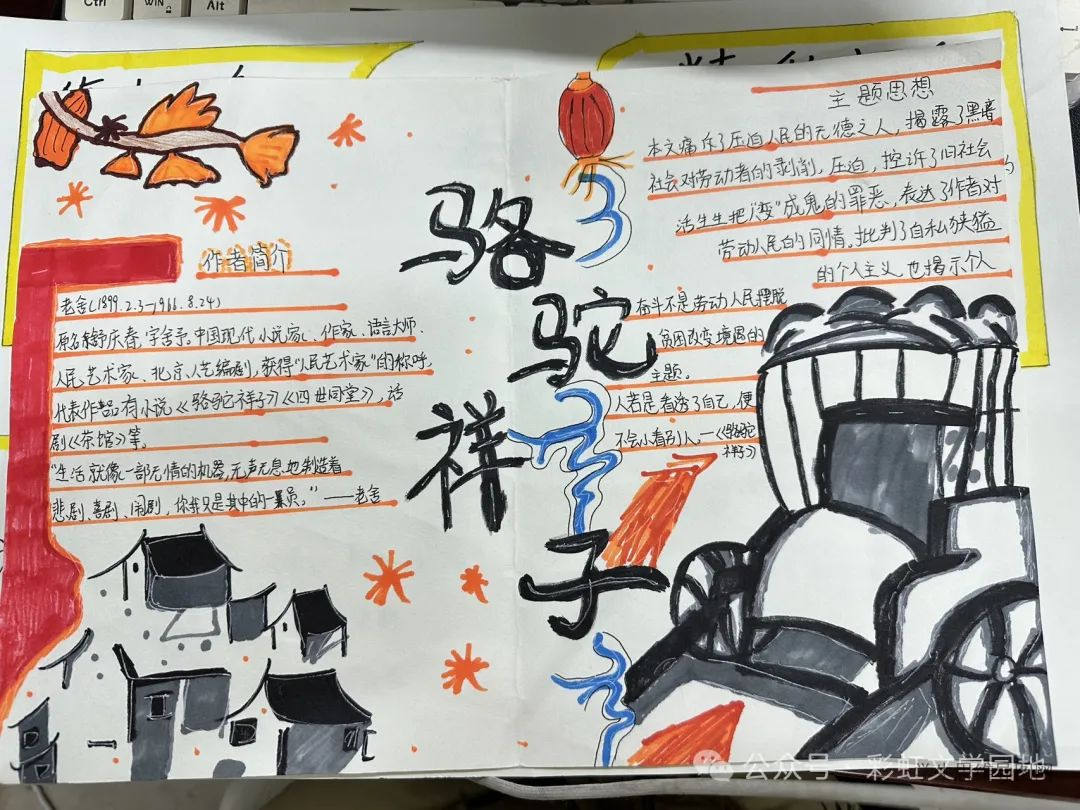 Ctrl
WIN
Alt
骆
驼
祥
子
作者简介
老舍(1899.2.3—1966.8.24)
原名舒庆春,字舍予。中国现代小说家、作家、语言大师、
人民艺术家、北京人艺编剧,获得"人民艺术家"的称呼。
代表作品有小说《骆驼祥子》《四世同堂》,话
剧《茶馆》等。
"生活就像一部无情的机器,无声无息地制造着
悲剧、喜剧、闹剧,你我只是其中的一纂员。"——老舍
主题思想
本文痛斥了压迫人民的无德之人,揭露了黑暗
社会对劳动者的剥削,压迫,控诉了旧社会
活生生把"人"变"成鬼的罪恶,表达了作者对
劳动人民的同情。批判了自私狭猛
的个人主义也揭示个人
奋斗不是劳动人民摆脱
贫困改变境遇的
主题。
人若是看透了自己,便
不会小看别人。—《骆驼
祥子》
公众号·彩虹文学园地